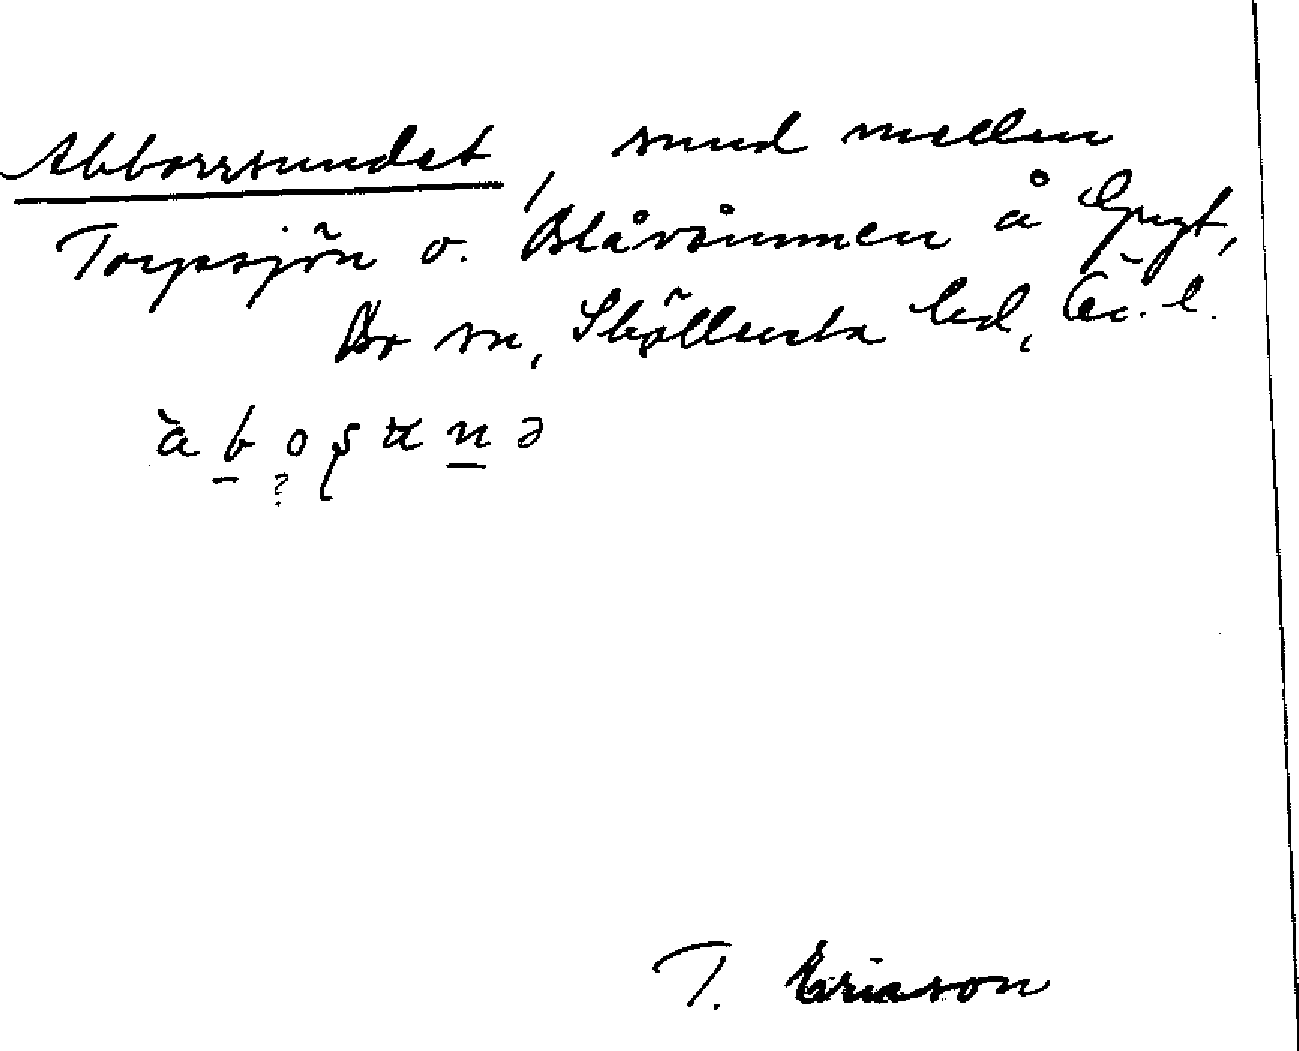 Abborrsundet, sund mellan
Torpsjön o. Blåvinnen å Gngt,
Bo sn, Sköllersta hd, Ör. l.
à b o ʂ u n ə
?
T. Ericson